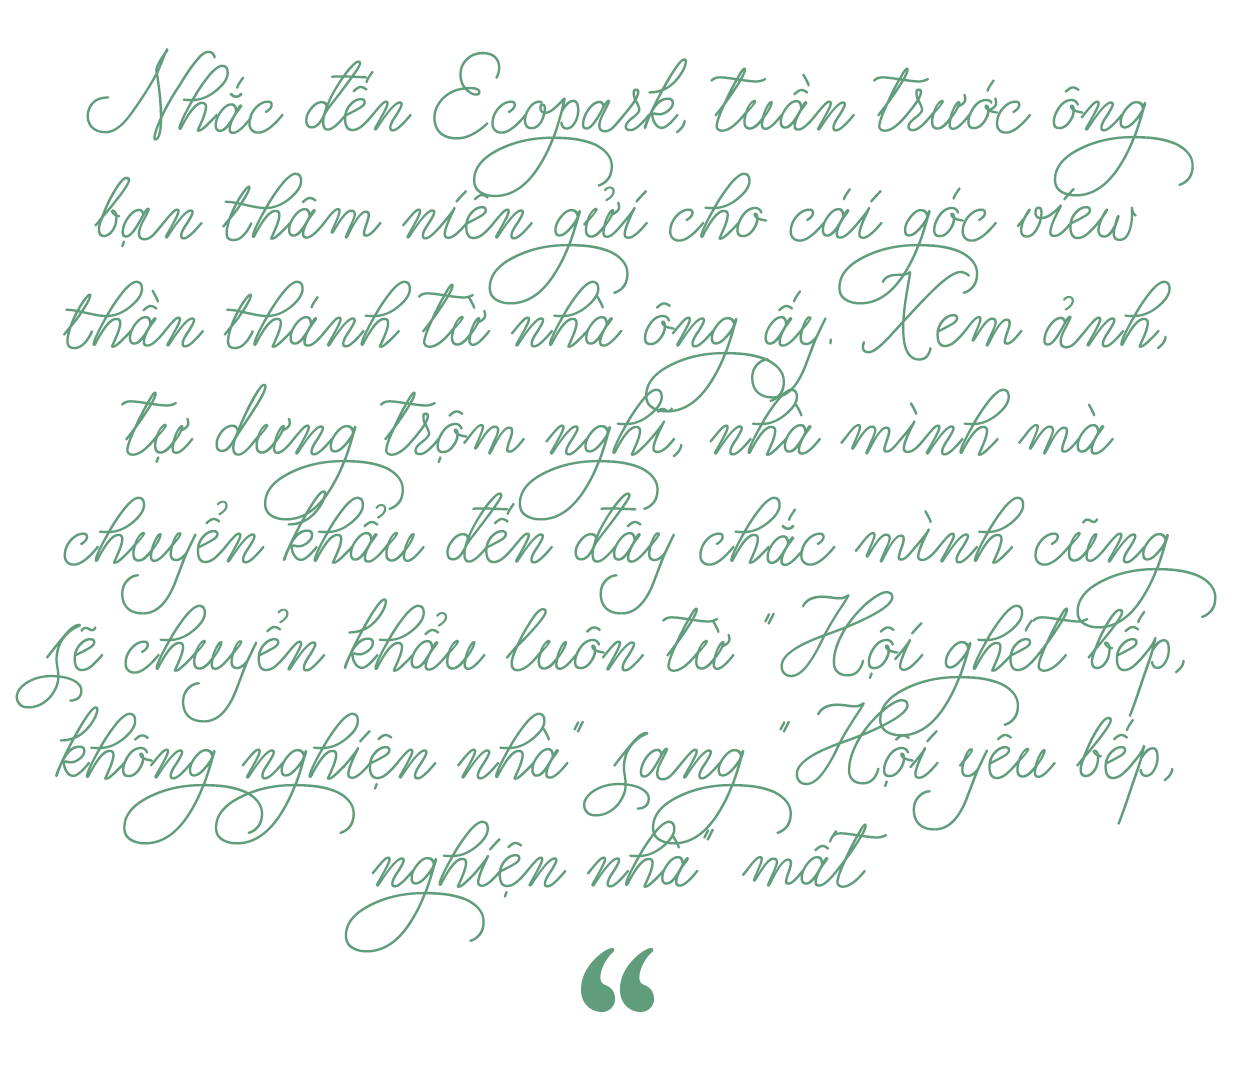 Nhắc đến Ecopark, tuần trước ông
bạn thâm niên gửi cho cái góc view
thần thánh từ nhà ông ấy. Xem ảnh,
tự dưng trộm nghĩ, nhà mình mà
chuyển khẩu đến đây chắc mình cũng
sẽ chuyển khẩu luôn từ "Hội ghét bếp,
không nghiện nhà" sang "Hội yêu bếp,
nghiện nhà" mất
“